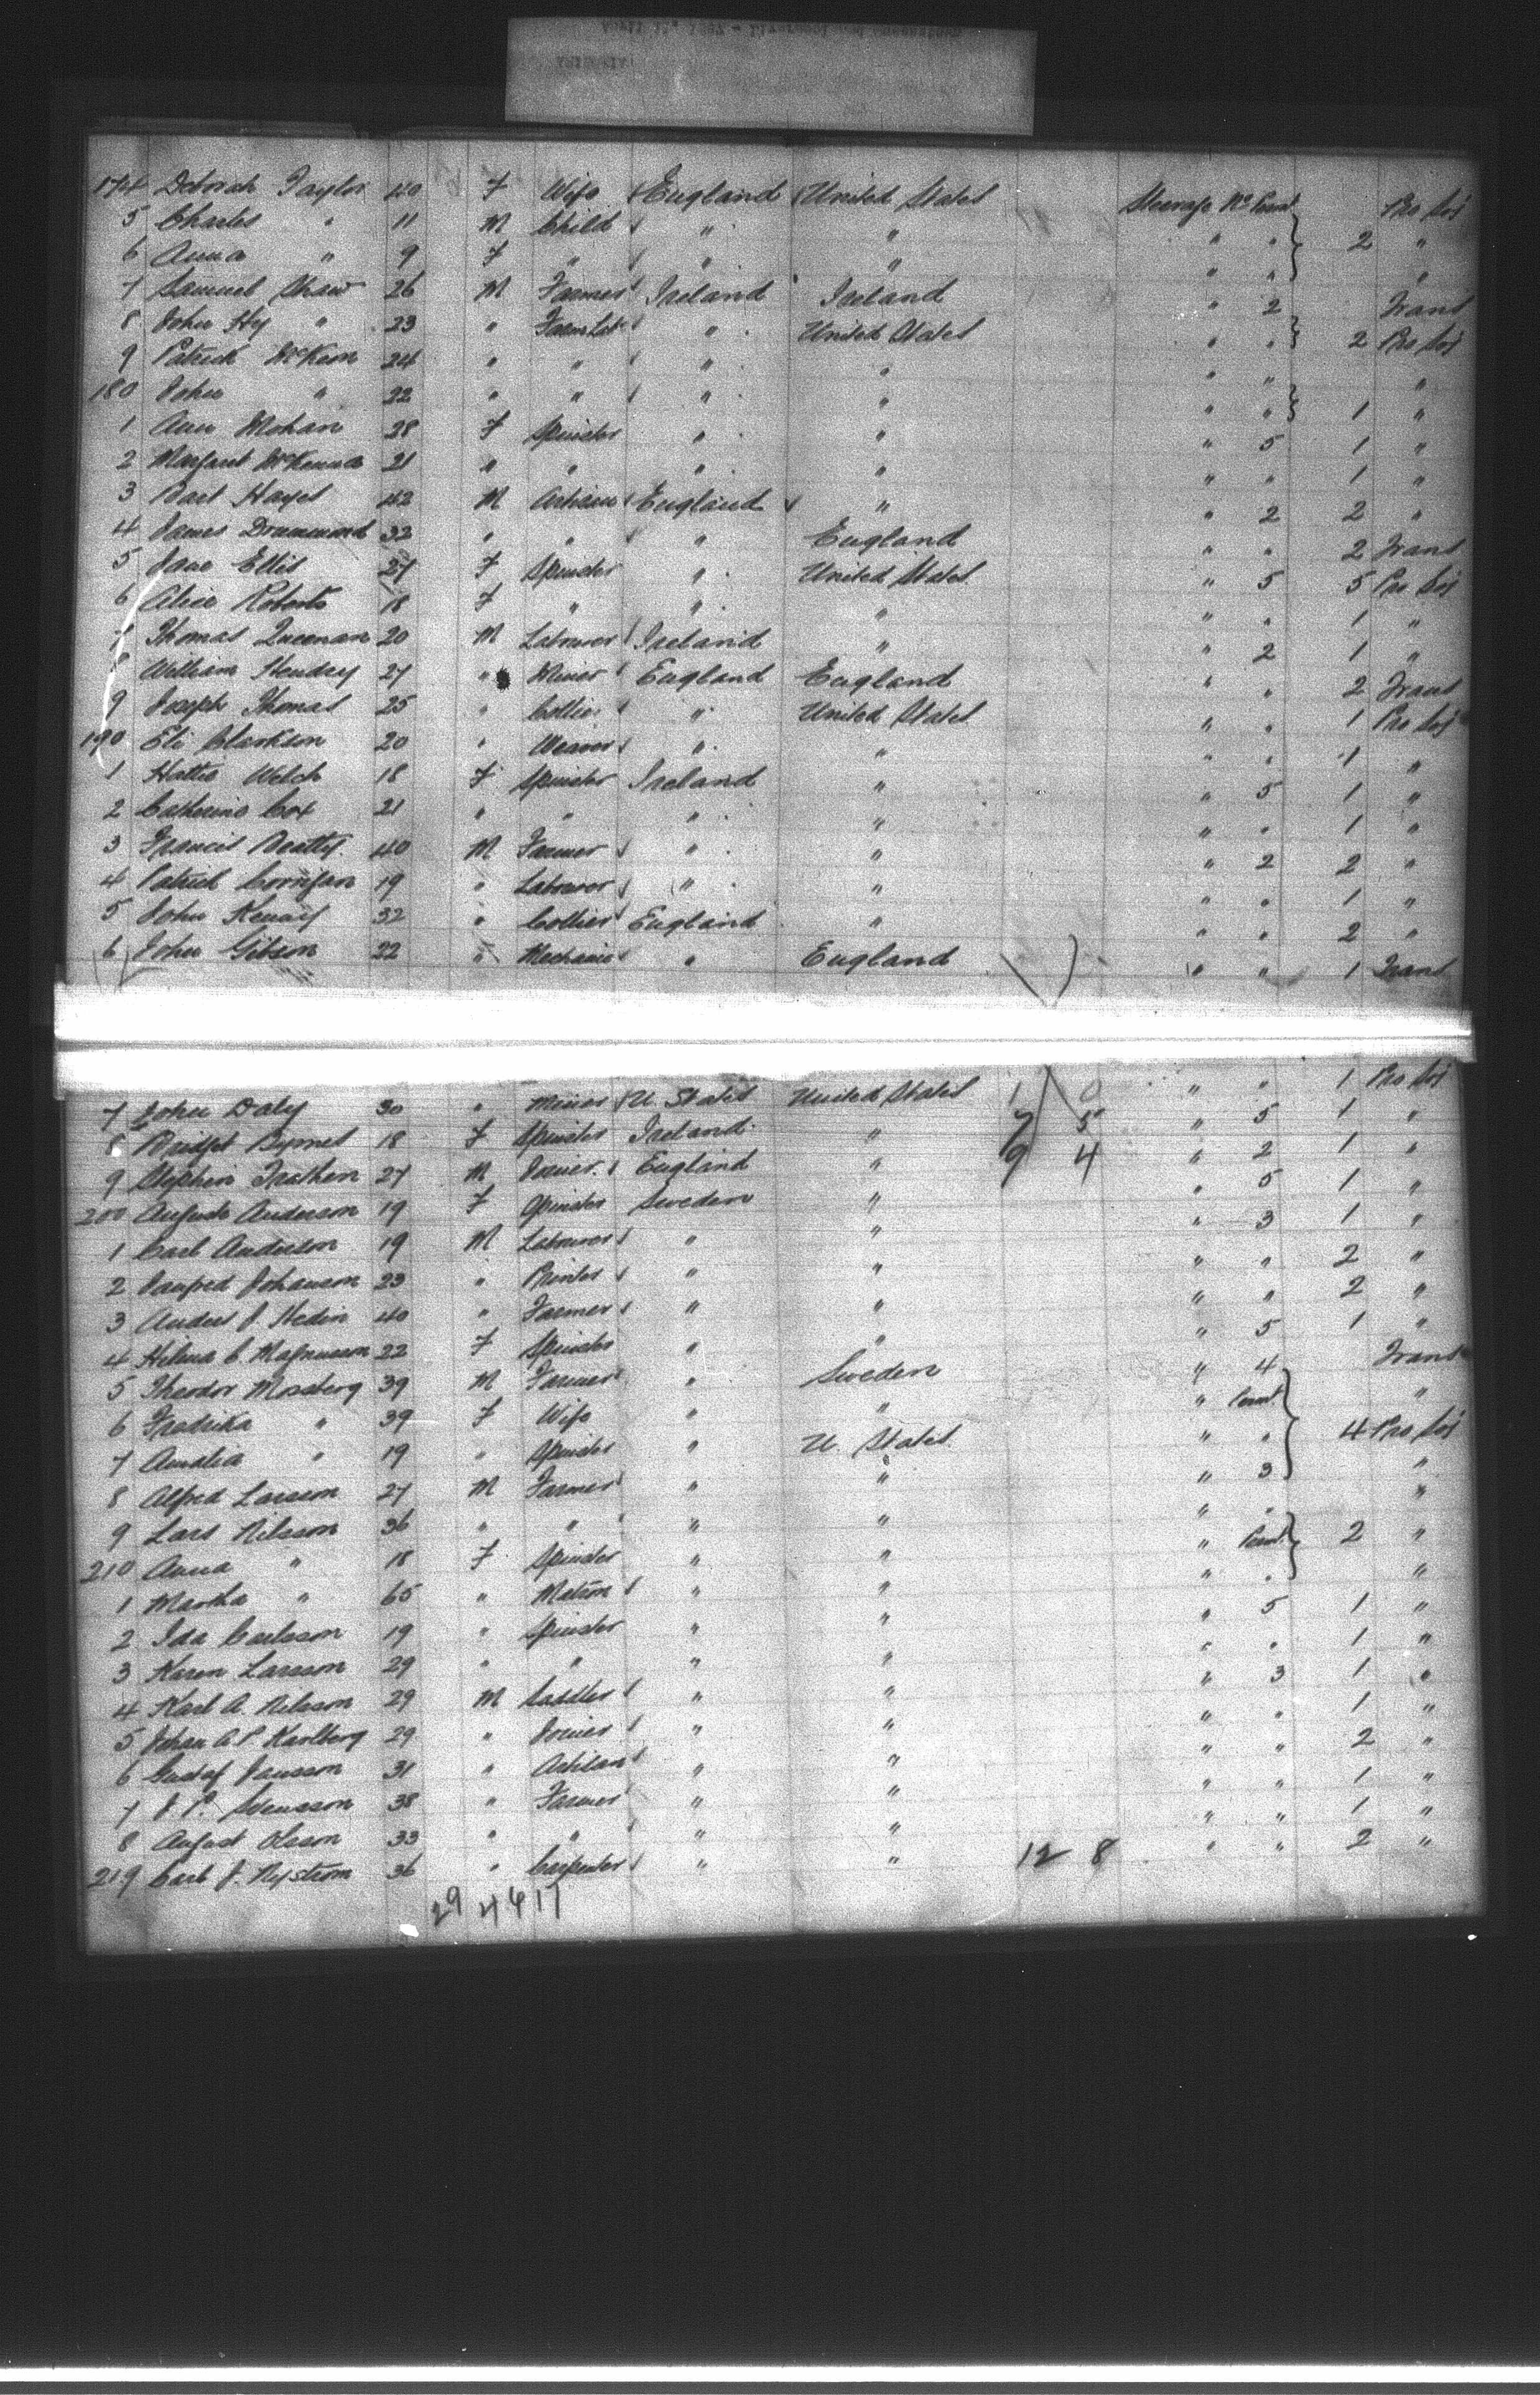 174 Deborah Taylor 40 F Wife England United States Steerage No 1 Pro Soj
5 Charles " 11 M Child " " " " 2 "
6 Anna " 9 F " " " " " "
7 Samuel Shaw 26 M Farmer Ireland Ireland " 2 Trans
8 John Hy " 23 " " United States " " 2 Pro Soj
9 Patrick McKeon 24 " " " " " " "
180 John " 22 " " " " " " 1 "
1 Ann Mohan 28 F Spinster " " " 5 1 "
2 Margaret McKenna 21 " " " " " " 1 "
3 Hayes 42 M Artisan England " " 2 2 "
4 James Drummond 32 " " " England " " 2 Trans
5 Jane Ellis 27 F Spinster " United States " 5 5 Pro Soj
6 Alice Roberts 18 F " " " " " 1 "
7 Thomas Queenan 20 M Labourer Ireland " " 2 1 "
8 William Hendry 27 " Miner England England " " 2 Trans
9 Joseph Thomas 25 " Collier " United States " " 1 Pro Soj
190 Eli Clarkson 20 " Weaver " " " " 1 "
1 Hattie Welch 18 F Spinster Ireland " " 5 1 "
2 Catherine Cox 21 " " " " " " 1 "
3 Francis Beatty 40 M Farmer " " " 2 2 "
4 Patrick Corrigan 19 " Labourer " " " " 1 "
5 John 32 " Collier England " " " 2 "
6 John Gibson 22 " Mechanic " England " " 1 Trans
7 John Daly 30 " Miner U. States United States 1 0 " " 1 Pro Soj
8 Bridget Byrnes 18 F Spinster Ireland " 7 5 " 5 1 "
9 Stephen Trathen 27 M Joiner England " 9 4 " 2 1 "
200 Augusta Anderson 19 F Spinster Sweden " " 5 1 "
1 Carl Anderson 19 M Labourer " " " 3 1 "
2 Johanson 23 " Printer " " " " 2 "
3 Anders J. Hedin 40 " Farmer " " " " 2 "
4 Helena C. Magnusson 22 F Spinster " " " 5 1 "
5 Theodor Mossberg 39 M Farmer " Sweden " 4 Trans
6 Fredrika " 39 F Wife " " " "
7 Amalia " 19 " Spinster " U. States " " 4 Pro Soj
8 Alfred Larsson 27 M Farmer " " " 3 "
9 Lars Nilsson 36 " " " " " " "
210 Anna " 18 F Spinster " " " 2 "
1 Martha " 65 " Matron " " " " "
2 Ida Carlsson 19 " Spinster " " " 5 1 "
3 Karen Larsson 29 " " " " " " 1 "
4 Karl A. Nilsson 29 M Saddler " " " 3 1 "
5 Johan A. P. Karlberg 29 " Joiner " " " " 1 "
6 Gustaf Jansson 31 " Artisan " " " " 2 "
7 J. P. Svensson 38 " Farmer " " " " 1 "
8 August Olsson 33 " " " " " " 1 "
219 Carl J. Nystrom 36 " Carpenter " " 12 8 " " 2 "
29 4 4 6 17